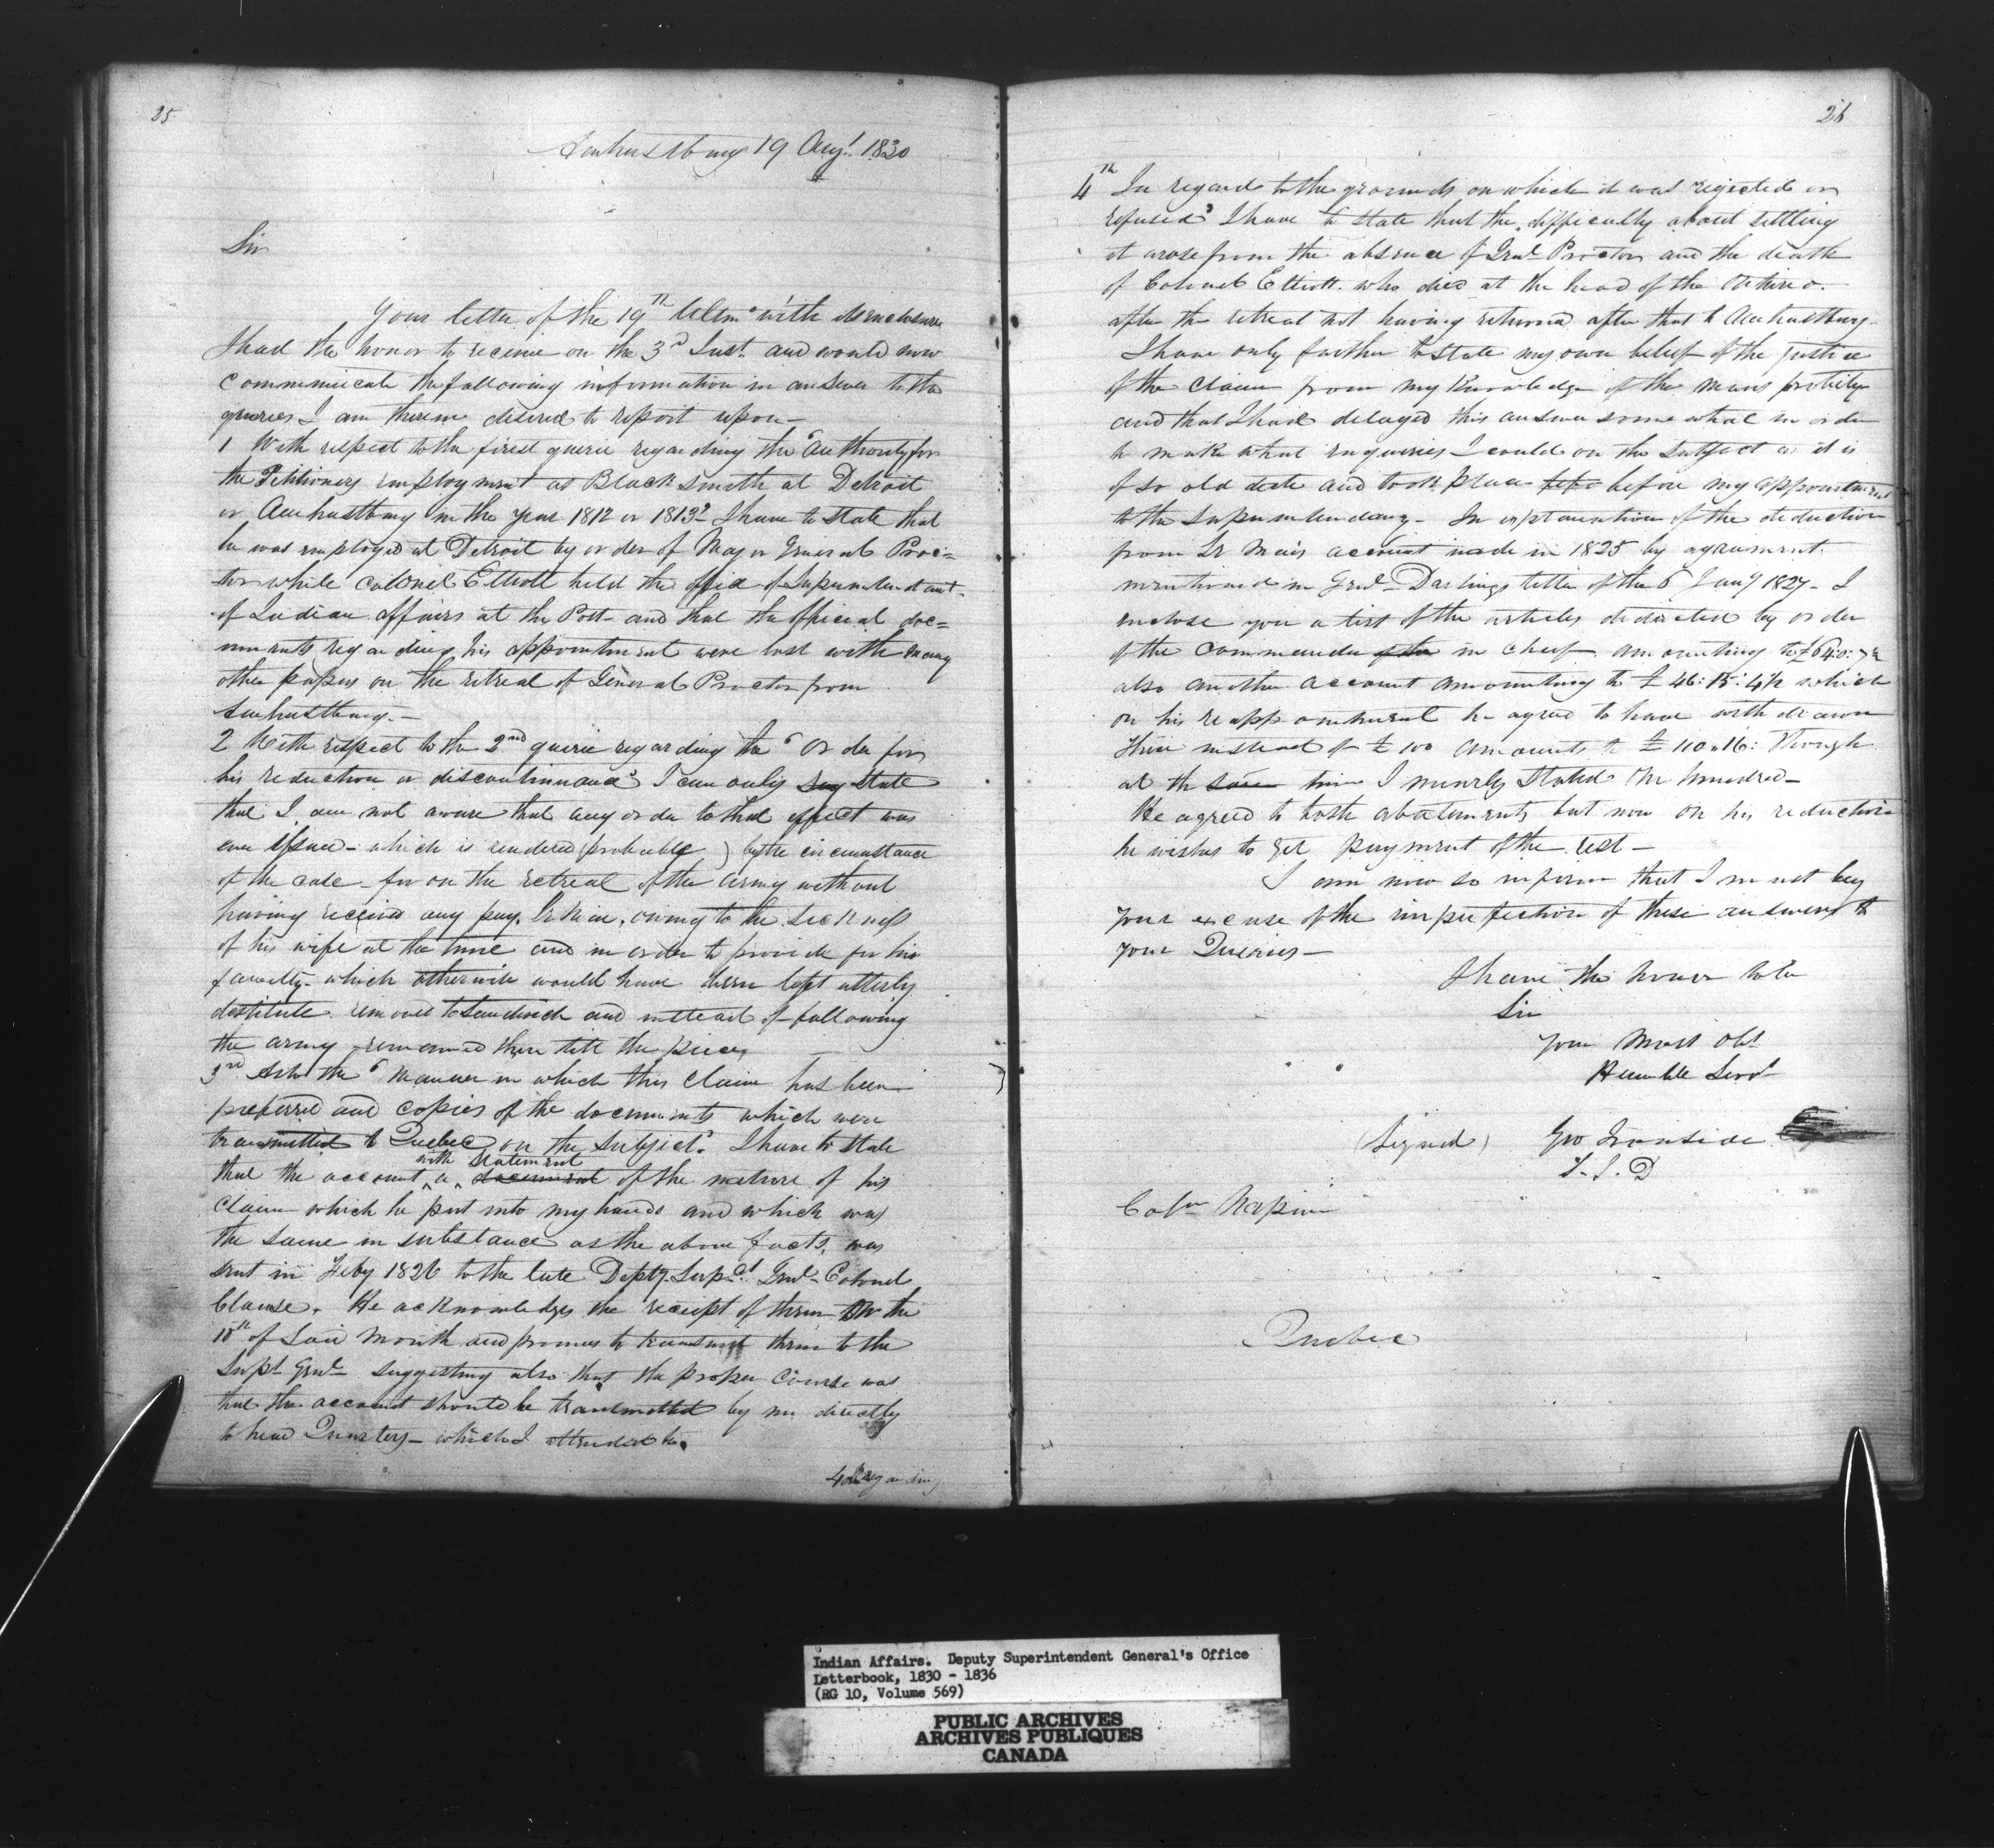 25
Amherstburg 19 Augt. 1830
Sir
Your letter of the 19th Ultmo with its enclosure
I had the honor to receive on the 3d Inst. and would now
communicate the following information in answer to the
queries I am therein desired to report upon—
1 With respect to the first querie regarding the "Authority for
the Petitioners employment as Black smith at Detroit
or Amherstburg in the year 1812 or 1813" I have to state that
he was employed at Detroit by order of Major General Proc=
tor while Colonel Elliott held the office of Superintendant
of Indian affairs at the Post— and that the official doc=
uments regarding his appointment were lost with many
other papers on the retreat of General Proctor from
Amherstburg.—
2 With respect to the 2nd querie regarding the "Order for
his reduction or discontinuance" I can only say state
that I am not aware that any order to that effect was
ever issued— which is rendered (probable) by the circumstance
of the case— for on the retreat of the army without
having received any pay, owing to the sickness
of his wife at the time and in order to provide for his
family— which otherwise would have been left utterly
destitute removed to Sandwich and instead of following
the army remained there till the peace
3rd As to the "Manner in which this claim has been
preferred and copies of the documents which were
transmitted to Quebec on the subject" I have to state
with statement
that the account a document of the nature of his
claim which he put into my hands and which was
the same in substance as the above facts, was
sent in Feby 1826 to the late Depty Supdt Genl Colonel
Clause. He acknowledges the receipt of them on the
18th of said Month and promises to transmit them to the
Supt Genl suggesting also that the proper course was
that the account should be transmitted by me directly
to head Quarters— which I attended to.
4th Regarding
26
4th In regard to the grounds on which it was rejected or
refused" I have to state that the difficulty about settling
it arose from the absence of Genl Proctor and the death
of Colonel Elliott who died at the head of the
after the retreat not having returned after that to Amherstburg—
I have only further to state my own belief of the justice
of the claim from my knowledge of the mans probity
and that I had delayed this answer some what in order
to make what enquiries I could on the subject as it is
of so old date and took place before my appointment
to the Superintendancy— In explanation of the deduction
from account made in 1825 by agreement
mentioned in Genl Darlings letter of the 6 Jany 1827— I
enclose you a list of the articles deducted by order
of the commander in cheif amounting to
also another account amounting to £ 46:15:4½ which
on his reappointment he agreed to have withdrawn
these instead of £ 100 amounts to £ 110:16: Though
at the same time I meerly stated One hundred—
He agreed to both abatements but now on his reduction
he wishes to get payment of the rest—
I am now so infirm that I must beg
your excuse of the imperfection of these answers to
your Queries—
I have the honor to be
Sir
Your Most Obt
Humble Servt
(Signed) Geo Ironside
S. I. D
Coln Napier
Quebec
Indian Affairs. Deputy Superintendent General's Office
Letterbook, 1830 - 1836
(RG 10, Volume 569)
PUBLIC ARCHIVES
ARCHIVES PUBLIQUES
CANADA